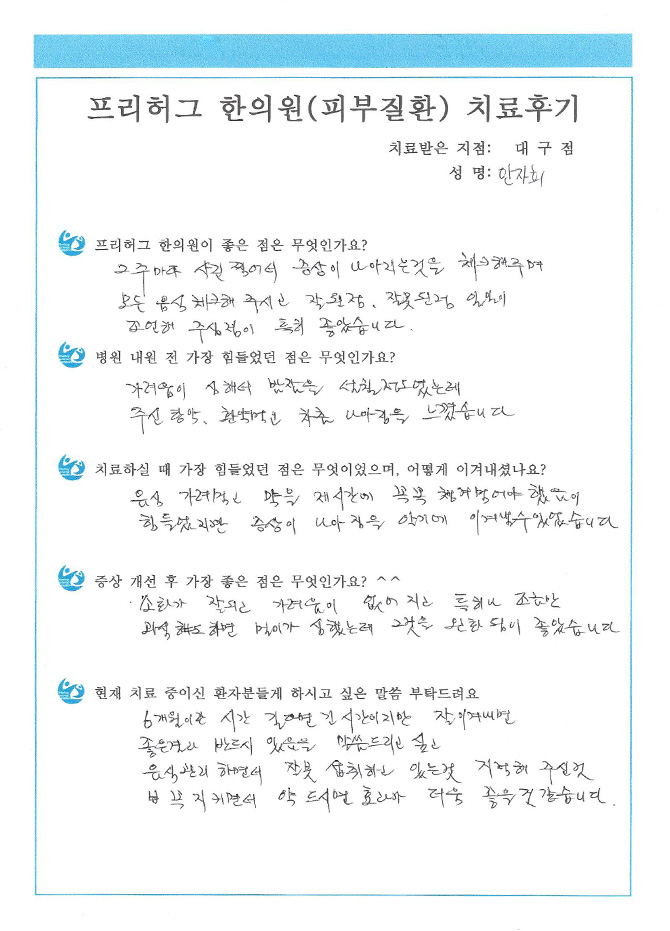 프리허그 한의원(피부질환) 치료후기
치료받은 지점: 대 구 점
성 명: 안자회
프리허그 한의원이 좋은 점은 무엇인가요?
2주마다 사진 찍어서 증상이 나아지는것을 체크해주며
모든 음식 체크해 주시고 잘된점, 잘못된점 일일이
조언해 주심점이 특히 좋았습니다.
병원 내원 전 가장 힘들었던 점은 무엇인가요?
가려움이 심해서 밤잠을 설칠정도였는데
주신 탕약, 환약먹고 차츰 나아짐을 느꼈습니다
치료하실 때 가장 힘들었던 점은 무엇이었으며, 어떻게 이겨내셨나요?
음식 가려먹고 약을 제시간에 꼭꼭 챙겨먹어야 했음이
힘들었지만 증상이 나아짐을 알기에 이겨낼수있었습니다
증상 개선 후 가장 좋은 점은 무엇인가요? ^^
소화가 잘되고 가려움이 없어 지고 특히나 조금만
과식해도 하면 멀미가 심했는데 그것을 완화 됨이 좋았습니다
현재 치료 중이신 환자분들게 하시고 싶은 말씀 부탁드려요
6개월이란 시간 길다면 긴 시간이지만 잘이겨내면
좋은결과 반드시 있음을 말씀드리고 싶고
음식관리 하면서 잘못 섭취하고 있는것 지적해 주실것
꼭 지키면서 약 드시면 효과가 더욱 좋을것 같습니다.